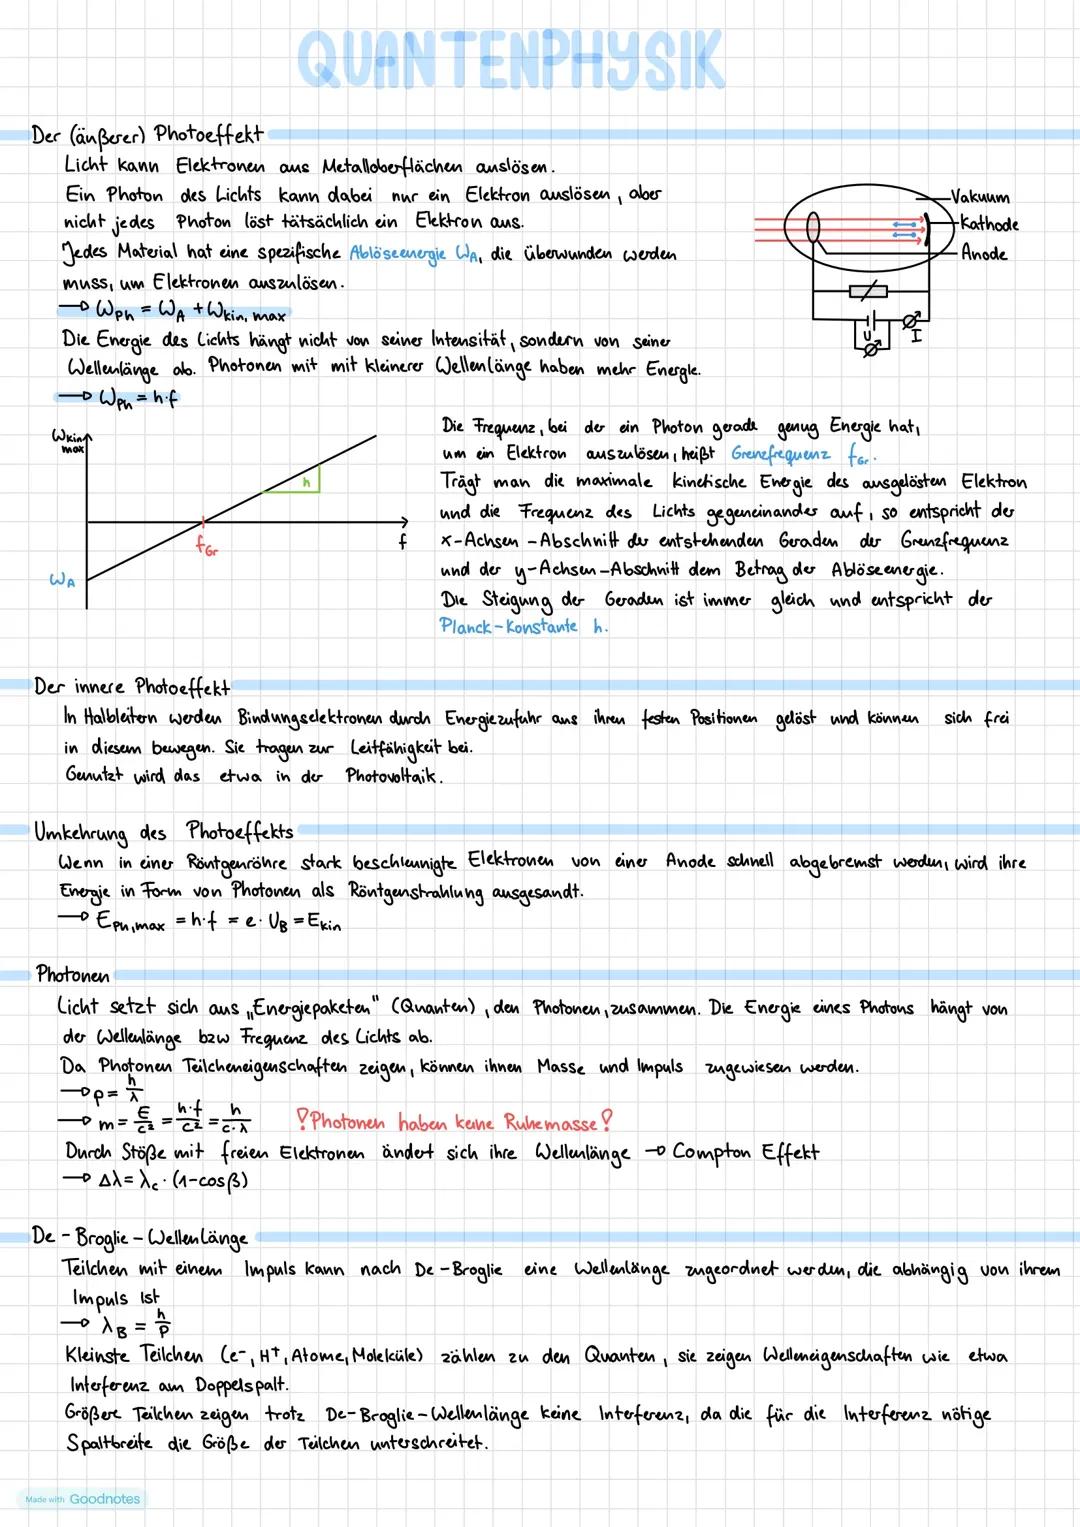 QUANTENPHYSIK
Der (äußerer) Photoeffekt
Licht kann Elektronen aus Metalloberflächen auslösen.
Ein Photon des Lichts kann dabei nur ein Elektron auslösen, aber
nicht jedes Photon löst tatsächlich ein Elektron aus.
Jedes Material hat eine spezifische Ablöseenergie WA, die überwunden werden
muss, um Elektronen auszulösen.
→ WPh = WA + Wkin, max
Die Energie des Lichts hängt nicht von seiner Intensität, sondern von seiner
Wellenlänge ab. Photonen mit mit kleinerer Wellenlänge haben mehr Energie.
→ WPh = h·f
Vakuum
Kathode
Anode
U
I
Wkin
max
h
fGr
f
WA
Die Frequenz, bei der ein Photon gerade genug Energie hat,
um ein Elektron auszulösen, heißt Grenzfrequenz fGr.
Trägt man die maximale kinetische Energie des ausgelösten Elektron
und die Frequenz des Lichts gegeneinander auf, so entspricht der
x-Achsen-Abschnitt der entstehenden Geraden der Grenzfrequenz
und der y-Achsen-Abschnitt dem Betrag der Ablöseenergie.
Die Steigung der Geraden ist immer gleich und entspricht der
Planck-Konstante h.
Der innere Photoeffekt
In Halbleitern werden Bindungselektronen durch Energiezufuhr aus ihren festen Positionen gelöst und können sich frei
in diesem bewegen. Sie tragen zur Leitfähigkeit bei.
Genutzt wird das etwa in der Photovoltaik.
Umkehrung des Photoeffekts
Wenn in einer Röntgenröhre stark beschleunigte Elektronen von einer Anode schnell abgebremst werden, wird ihre
Energie in Form von Photonen als Röntgenstrahlung ausgesandt.
→ EPh,max = h·f = e·UB = Ekin
Photonen
Licht setzt sich aus „Energiepaketen" (Quanten), den Photonen, zusammen. Die Energie eines Photons hängt von
der Wellenlänge bzw Frequenz des Lichts ab.
Da Photonen Teilcheneigenschaften zeigen, können ihnen Masse und Impuls zugewiesen werden.
→ p = h/λ
→ m = E/c² = h·f/c² = h/c·λ !Photonen haben keine Ruhemasse!
Durch Stöße mit freien Elektronen ändert sich ihre Wellenlänge → Compton Effekt
→ Δλ = λc · (1-cosβ)
De-Broglie-Wellenlänge
Teilchen mit einem Impuls kann nach De-Broglie eine Wellenlänge zugeordnet werden, die abhängig von ihrem
Impuls ist
→ λB = h/p
Kleinste Teilchen (e⁻, H⁺, Atome, Moleküle) zählen zu den Quanten, sie zeigen Welleneigenschaften wie etwa
Interferenz am Doppelspalt.
Größere Teilchen zeigen trotz De-Broglie-Wellenlänge keine Interferenz, da die für die Interferenz nötige
Spaltbreite die Größe der Teilchen unterschreitet.
Made with Goodnotes